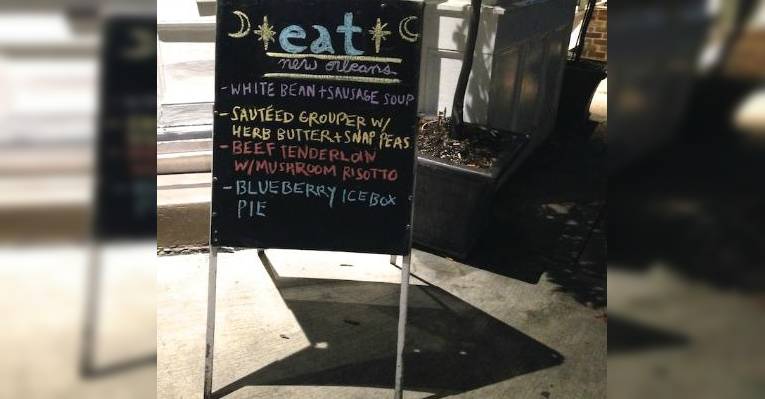 eat
new orleans
- WHITE BEAN + SAUSAGE SOUP
- SAUTÉED GROUPER W/
HERB BUTTER + SNAP PEAS
- BEEF TENDERLOIN
W/ MUSHROOM RISOTTO
- BLUEBERRY ICEBOX
PIE